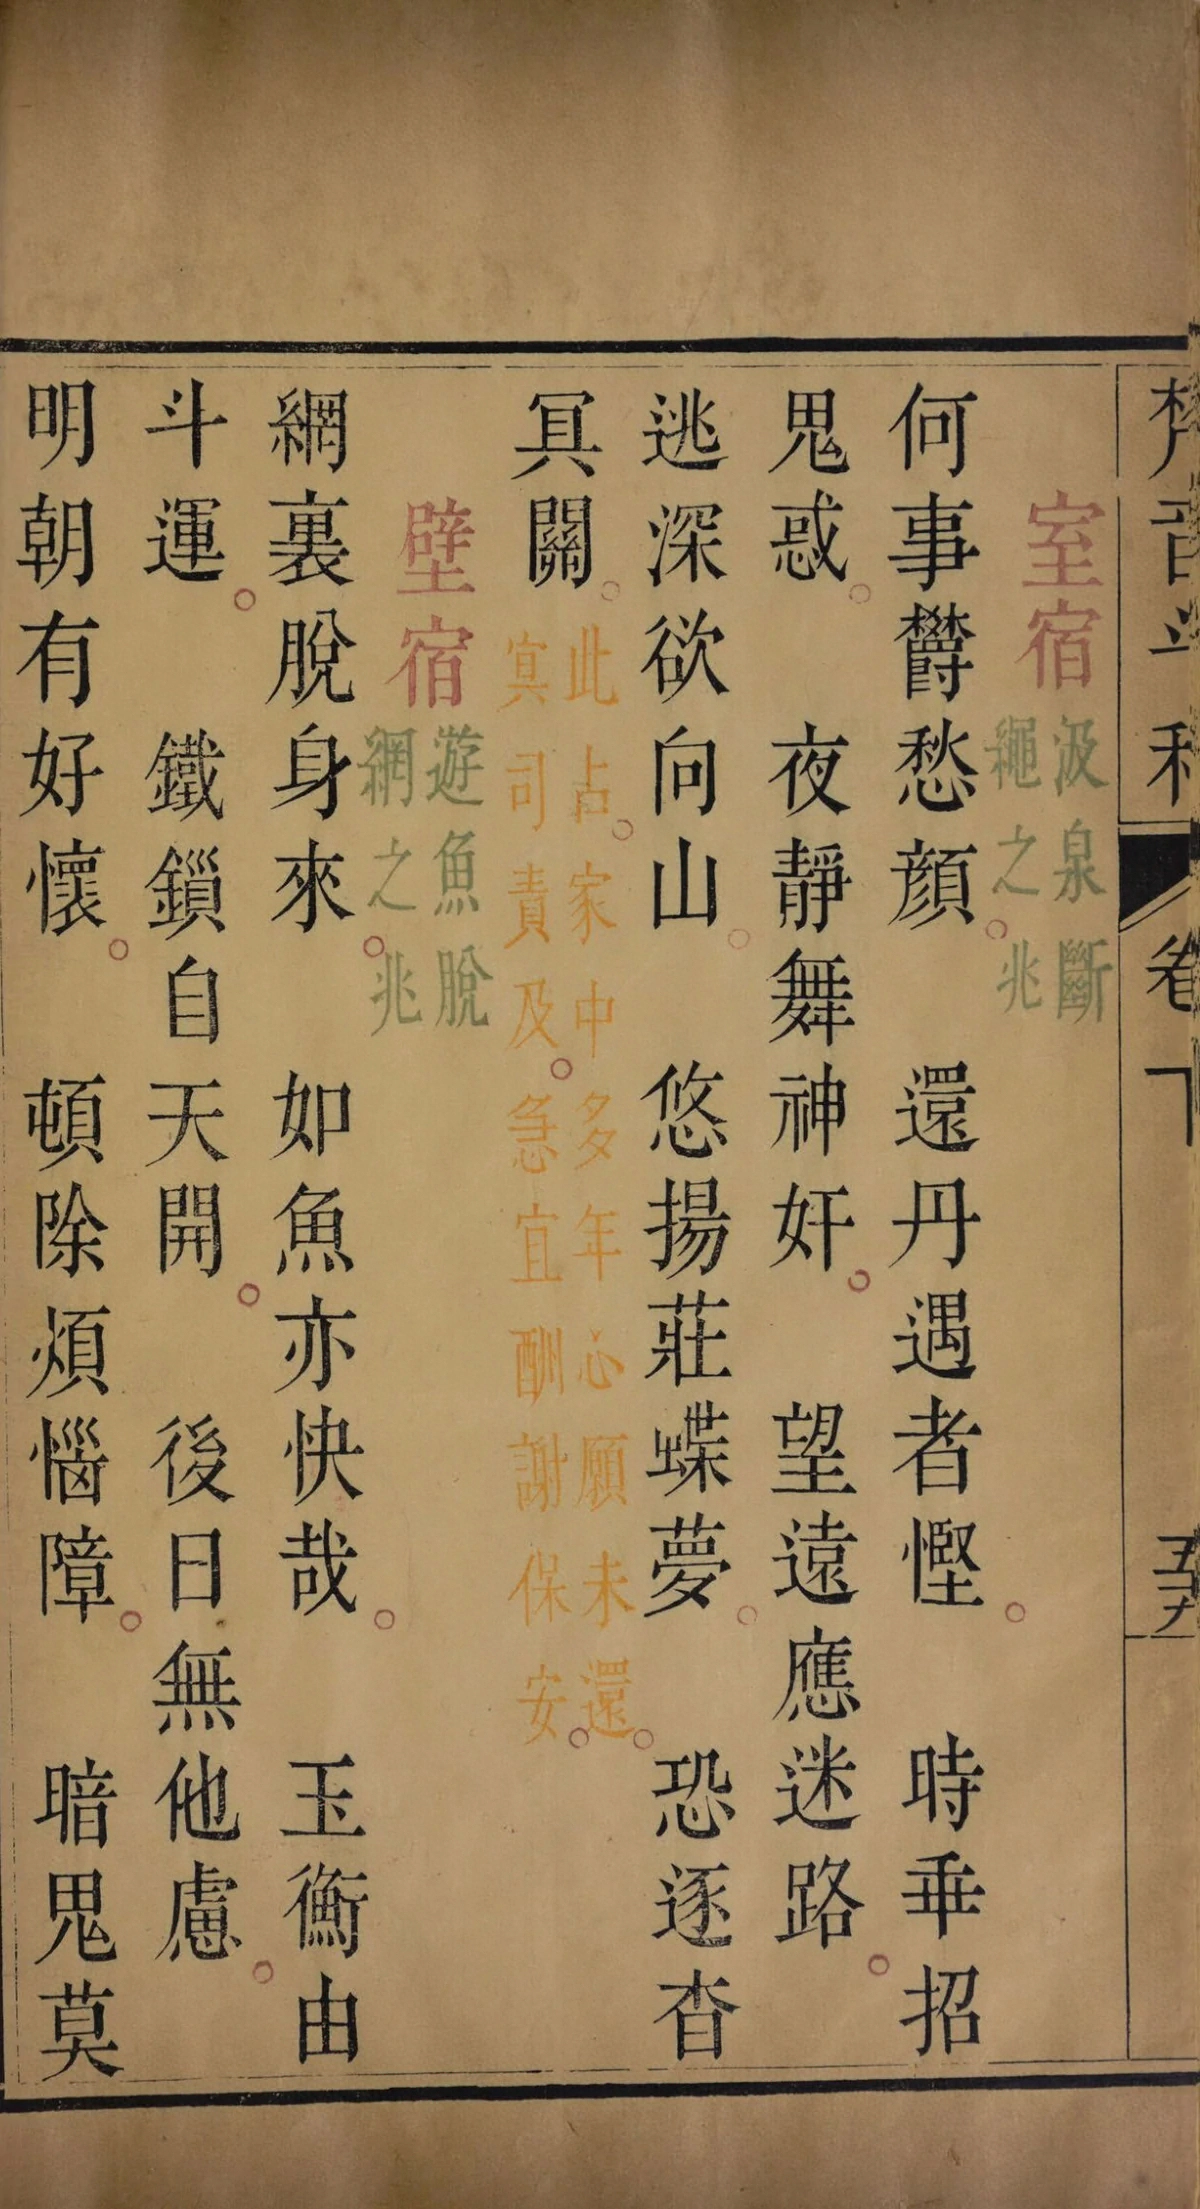 梵音斗科 卷下 五十九
室宿 汲泉斷
繩之兆
何事欝愁顏。還丹遇者慳。時垂招
鬼惑。夜靜舞神奸。望遠應迷路。
逃深欲向山。悠揚莊蝶夢。恐逐杳
冥關。此占。家中多年心願未還。
冥司責及。急宜酬謝保安。
壁宿 遊魚脫
網之兆
網裏脫身來。如魚亦快哉。玉衡由
斗運。鐵鎖自天開。後日無他慮。
明朝有好懷。頓除煩惱障。暗鬼莫